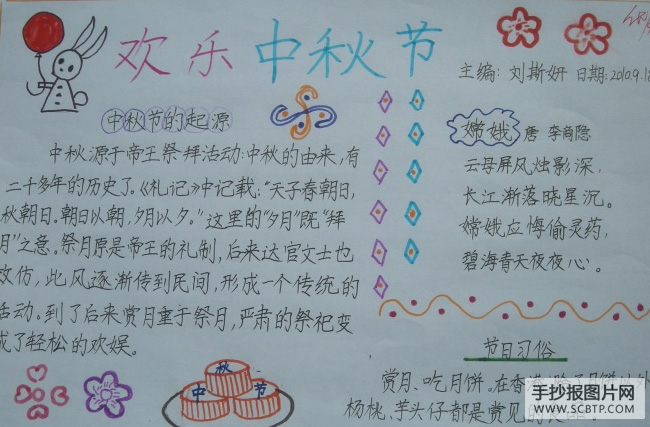 欢乐中秋节
主编：刘斯妍 日期：2010.9.18
中秋节的起源
中秋源于帝王祭拜活动：中秋的由来，有
二千多年的历史了。《礼记》中记载：“天子春朝日，
秋朝日。朝日以朝，夕月以夕。”这里的“夕月”既“拜
月”之意。祭月原是帝王的礼制，后来达官文士也
效仿，此风逐渐传到民间，形成一个传统的
活动。到了后来赏月重于祭月，严肃的祭祀变
成了轻松的欢娱。
嫦娥 唐 李商隐
云母屏风烛影深，
长江渐落晓星沉。
嫦娥应悔偷灵药，
碧海青天夜夜心。
节目习俗
赏月、吃月饼。在香港
杨桃，芋头仔都是赏见的
中 秋 节
手抄报图片网
WWW.SCBTP.COM